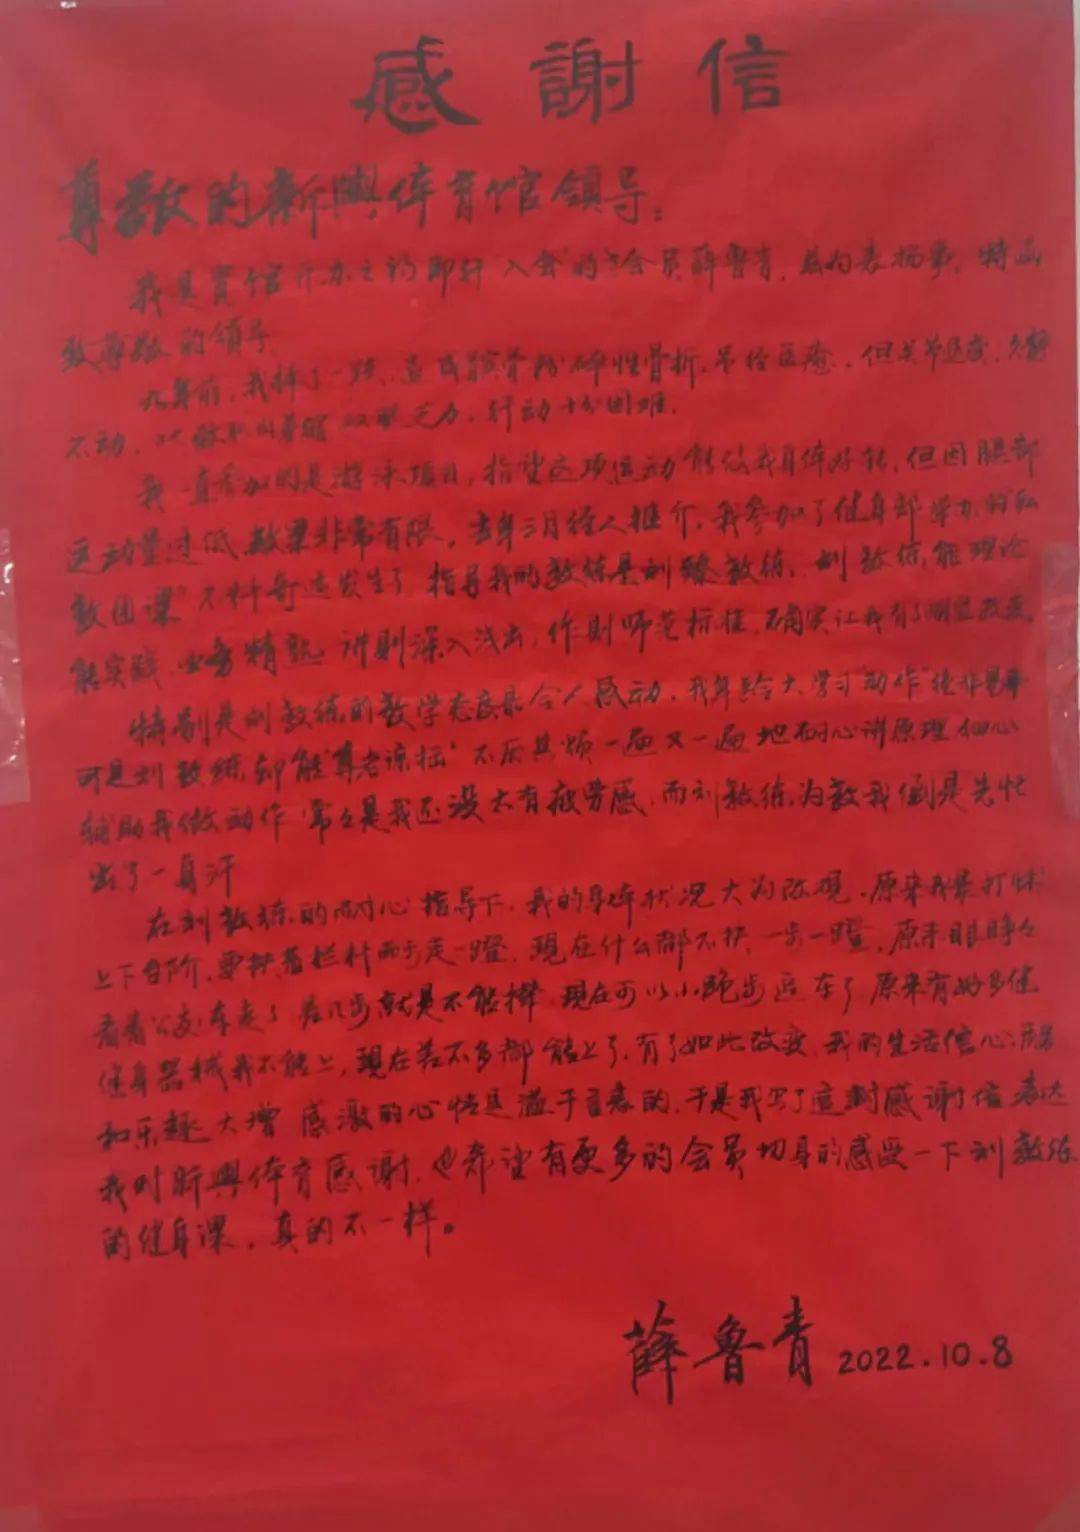 感謝信
尊敬的新興体育馆领导：
我是贵馆开办之初即行入会的老会员薛鲁青，兹为表扬事，特函
致尊敬的领导
九年前，我摔了一跤，造成髌骨粉碎性骨折，虽经医愈，但关节退变，
不动，双腿乏力，行动十分困难。
我一直参加的是游泳项目，指望这项运动能使我身体好转，但因腿部
运动量过低，效果非常有限。去年三月经人推介，我参加了健身部举办的私
教团课"不料奇迹发生了，指导我的教练是刘臻教练，刘教练能理论
能实践，业务精说，讲则深入浅出，作则师范标准，确实让我有了明显改变。
特别是刘教练的教学态度最令人感动，我年龄大学习动作绝非易事
可是刘教练却能"尊老谅拙"不厌其烦一遍又一遍地耐心讲原理细心
辅助我做动作常々是我还没太有疲劳感，而刘教练为教我倒是先忙
出了一身汗
在刘教练的耐心指导下，我的身体状况大为改观。原来我是打怵
上下台阶，要扶着栏杆两步走一蹬，现在什么都不扶，一步一蹬，原来眼睁々
看着公交车走了差几步就是不能撵，现在可以小跑步追车了原来有好多健
健身器械我不能上，现在差不多都能上了，有了如此改变，我的生活信心
和乐趣大增 感激的心情是溢于言表的，于是我写了這封感谢信表达
我对新興体育感谢，也希望有更多的会员切身的感受一下刘教练
的健身课，真的不一样。
薛鲁青 2022.10.8